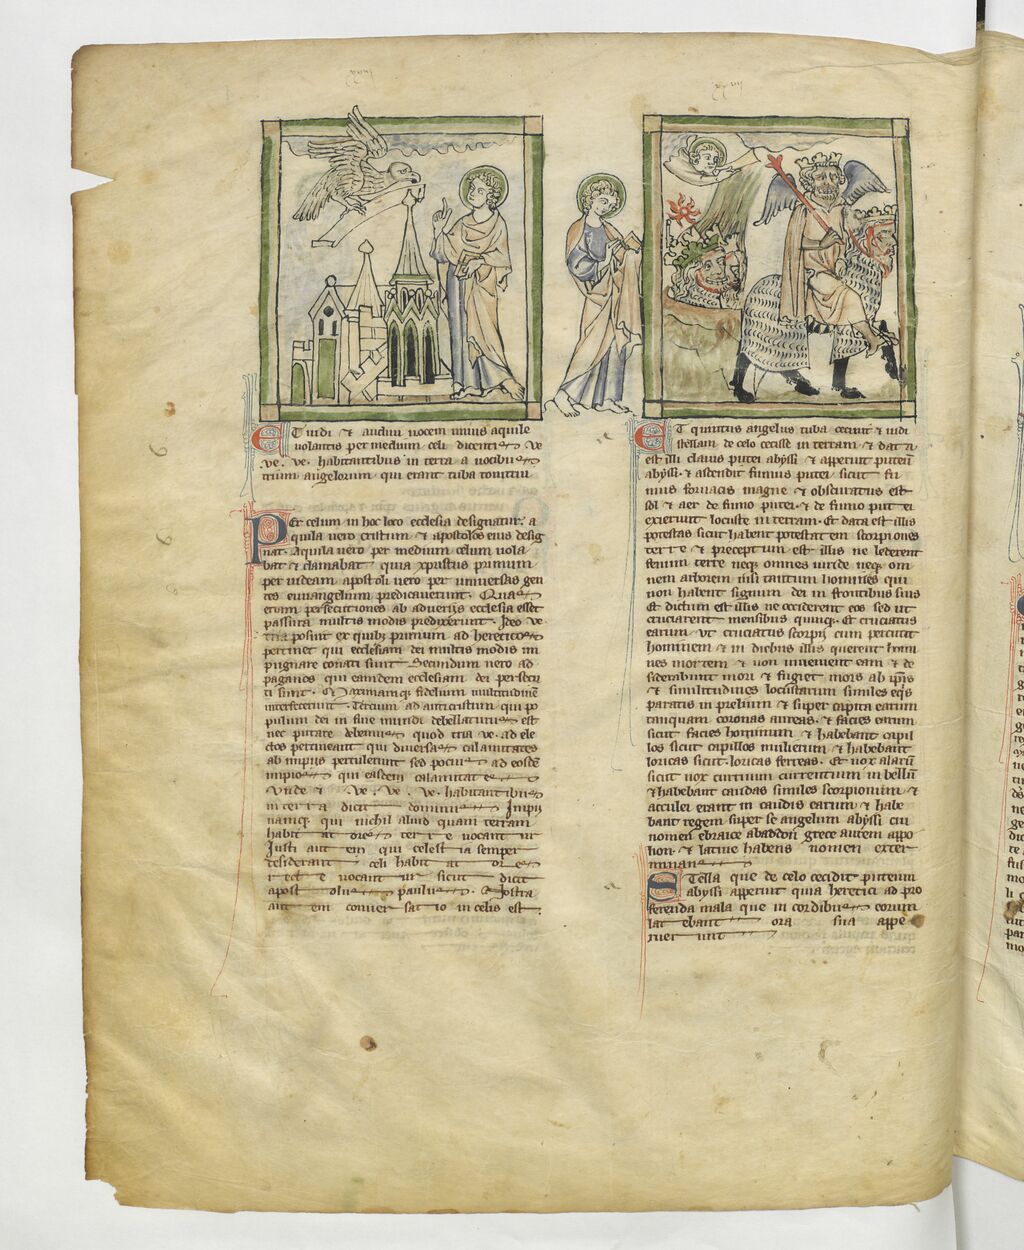 Et uidi ⁊ audiui uocem unius aquile
uolantis per medium celi dicentis ve
ve. ve. habitantibus in terra a uocibus
trium angelorum qui erant tuba canituri
Per celum in hoc loco ecclesia designatur. a
quila uero cristum ⁊ apostolos eius desig
nat. Aquila uero per medium celum uola
bat ⁊ clamabat quia xpistus primum
per iudeam apostoli uero per universas gen
tes euuangelium predicauerunt.
etiam persecutiones ab aduersis ecclesia esset
passura multis modis predixerunt. Ideo ve
tria posint ex quibus primum ad hereticos
pertinet qui ecclesiam dei multis modis im
pugnare conati sunt. Secundum uero ad
paganos qui eamdem ecclesiam dei persecu
ti sunt. Maximamque fidelium multitudinem
interfecerunt. Tercium ad anticristum qui po
pulum dei in fine mundi debellaturus est
nec putare debemus quod tria ve. ad ele
ctos pertineant qui diuersas calamitates
ab impiis pertulerunt sed pocius ad eosdem
impios qui easdem calamitates
Vnde ⁊ Ve. Ve. Ve. habitantibus
in terra dicit dominus Impii
namque qui nichil aliud quam terram
habitatores terre uocantur
Iusti autem qui celestia semper
desiderant celi habitatores
recte uocantur sicut dicit
apostolus paulus. Nostra
autem conuersatio in celis est.
Et quintus angelus tuba cecinit ⁊ uidi
stellam de celo cecisse in terram ⁊ data
est illi clauis putei abyssi ⁊ apperuit puteum
abyssi. ⁊ ascendit fumus putei sicut fu
mus fornacis magne ⁊ obscuratus est
sol ⁊ aer de fumo putei. ⁊ de fumo putei
exierunt locuste in terram. Et data est illis
potestas sicut habent potestatem scorpiones
terre ⁊ preceptum est illis ne lederent
fenum terre neque omnes uiride neque om
nem arborem nisi tantum homines qui
non habent signum dei in frontibus suis
Et dictum est illis ne occiderent eos sed ut
cruciarent mensibus quinque. Et cruciatus
earum vt cruciatus scorpii cum percutit
hominem ⁊ in diebus illis querent homi
nes mortem ⁊ non inuenient eam ⁊ de
siderabunt mori ⁊ fugiet mors ab ipsis
⁊ similitudines locustarum similes equis
paratis in prelium ⁊ super capita earum
tanquam coronas aureas. ⁊ facies earum
sicut facies hominum ⁊ habebant capil
los sicut capillos mulierum ⁊ habebant
loricas sicut loricas ferreas. Et uox alarum
sicut uox curruum currentium in bellum
⁊ habebant caudas similes scorpionum ⁊
aculei erant in caudis earum ⁊ habe
bant regem super se angelum abyssi cui
nomen ebraice abaddon grece autem appo
lion. ⁊ latine habens nomen exter
minans
Stella que de celo cecidit puteum
abyssi apperuit quia heretici ad pro
ferenda mala que in cordibus eorum
latebant ora sua appe
ruerunt